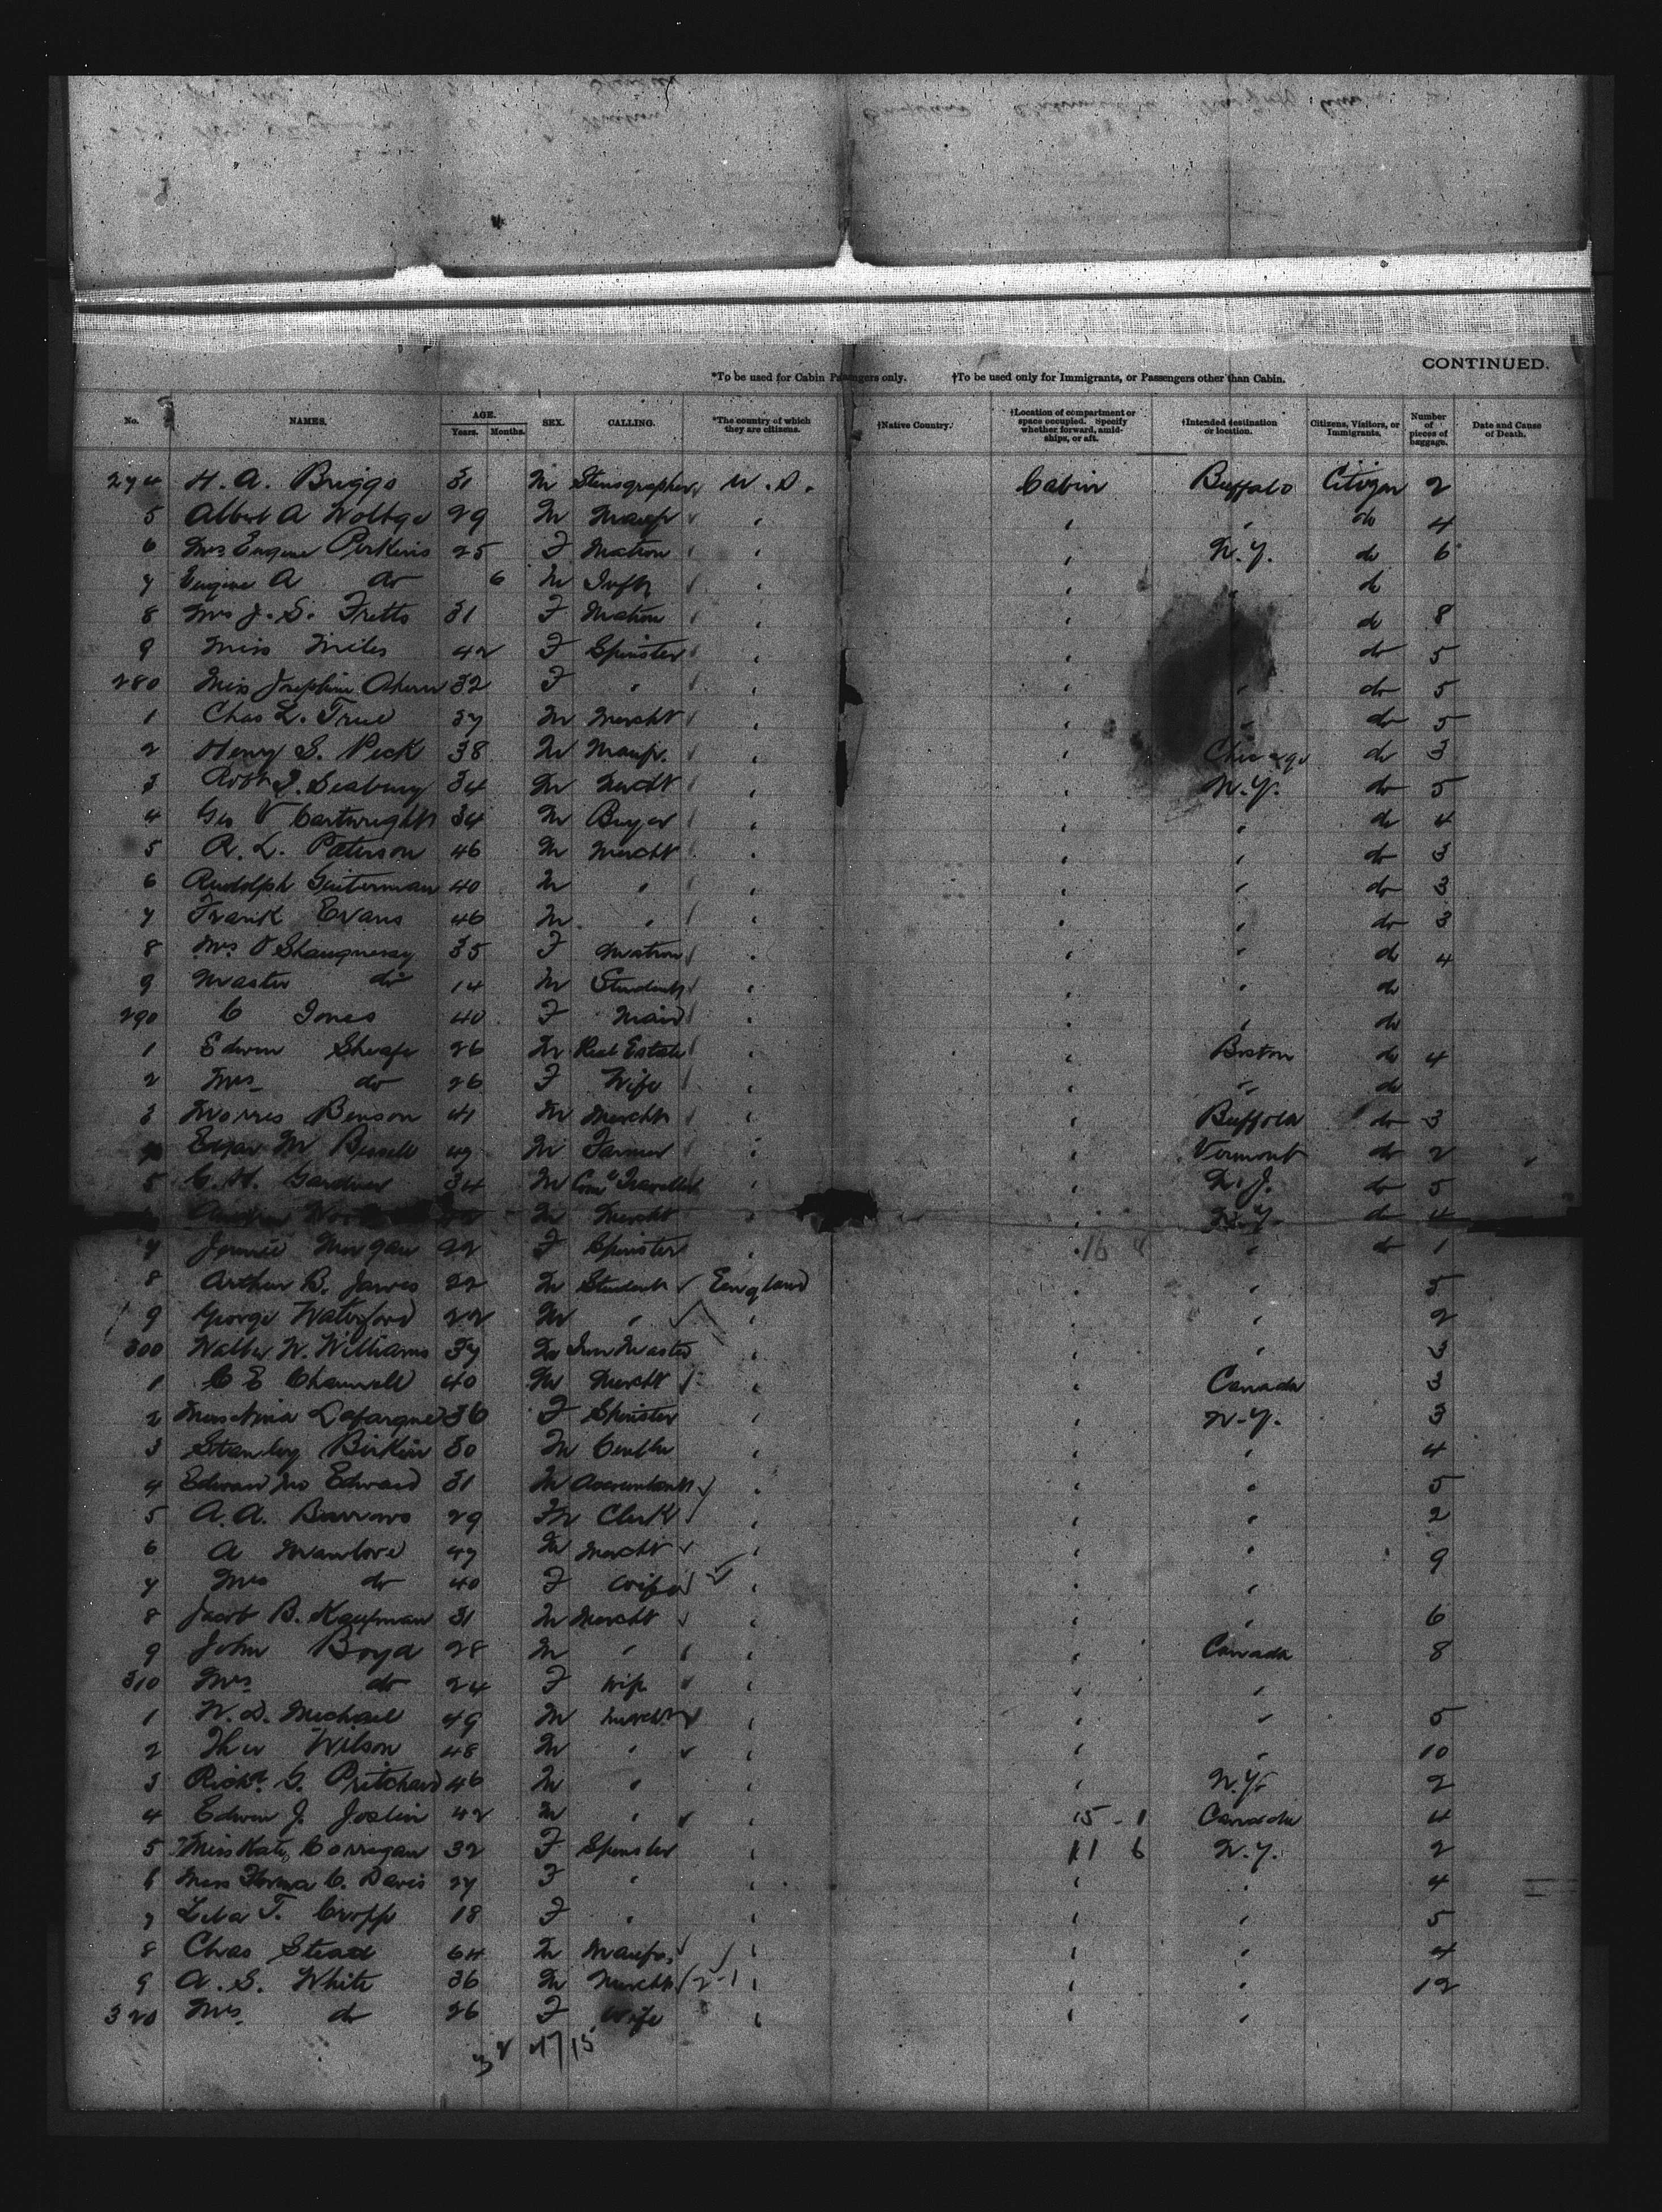 CONTINUED.
*To be used for Cabin Passengers only. †To be used only for Immigrants, or Passengers other than Cabin.
No. NAMES. AGE. Years. Months. SEX. CALLING. *The country of which they are citizens. †Native Country. †Location of compartment or space occupied. Specify whether forward, amidships, or aft. †Intended destination or location. Citizens, Visitors, or Immigrants. Number of pieces of baggage. Date and Cause of Death.
274 H. A. Briggs 31 M Stenographer U.S. Cabin Buffalo Citizen 2
5 Albert A 29 M Manfr " " " do 4
6 Mrs Eugene Perkins 25 F Matron " " N.Y. do 6
7 Eugene A do 6 M Inft " " " do
8 Mrs J. S. Fretts 31 F Matron " " do 8
9 Miss Miles 42 F Spinster " " do 5
280 Miss Josephine Ahern 32 F " " " " do 5
1 Chas L. True 37 M Mercht " " " do 5
2 Henry S. Peck 38 M Manfr. " " Chicago do 3
3 Robt J. Seabury 34 M Mercht " " N.Y. do 5
4 Geo V Cartwright 34 M Buyer " " " do 4
5 R. L. Paterson 46 M Mercht " " " do 3
6 Rudolph Guiterman 40 M " " " " do 3
7 Frank Evans 46 M " " " " do 3
8 Mrs O'Shaugnessy 35 F Matron " " " do 4
9 Master do 14 M Student " " " do
290 C Jones 40 F Maid " " " do
1 Edwin Sheafe 26 M Real Estate " " Boston do 4
2 Mrs do 26 F Wife " " " do
3 Morris Benson 41 M Mercht " " Buffola do 3
4 Edgar M Bissell 49 M Farmer " " Vermont do 2
5 C. H. Gardner 34 M Com Traveller " " N.J. do 5
M Mercht " N.Y. do 4
7 Jennie Morgan 22 F Spinster " " " do 1
8 Arthur B. Jarvis 22 M Student England " " 5
9 George Waterford 22 M " " " " 2
300 Walter W. Williams 37 M Iron Master " " " 3
1 C E Channell 40 M Mercht " " Canada 3
2 Miss Nina Lafargue 36 F Spinster " " N.Y. 3
3 Stanley Birkin 30 M " " " 4
4 Edward Edward 31 M Accountant " " " 5
5 A. A. Burrows 29 M Clerk " " " 2
6 A Manlove 47 M Mercht " " " 9
7 Mrs do 40 F Wife " " "
8 Jacob B. Kaufman 31 M Mercht " " " 6
9 John Boyd 28 M " " " Canada 8
310 Mrs do 24 F Wife " " "
1 W. D. Michael 49 M Mercht " " " 5
2 Wilson 48 M " " " " 10
3 Richd G. Pritchard 46 M " " " N.Y. 2
4 Edwin J. Joslin 42 M " " 15 - 1 Canada 4
5 Miss Kate Corrigan 32 F Spinster " 11 6 N.Y. 2
6 Miss C. Davis 27 F " " " " 4
7 Lila T. Cropp 18 F " " " " 5
8 Chas Stead 64 M Manfr. " " " 4
9 A. S. White 36 M Mercht 2-1 " " " 12
320 Mrs do 26 F Wife " " "